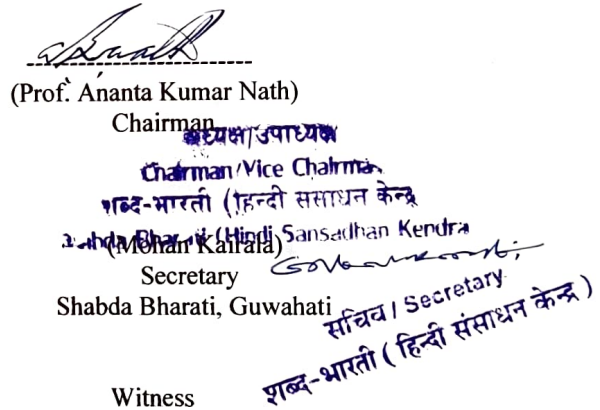 (Prof. Ananta Kumar Nath)
Chairman
अध्यक्ष/उपाध्यक्ष
Chairman/Vice Chairman
शब्द-भारती (हिन्दी संसाधन केन्द्र
Shabda Bharati (Hindi Sansadhan Kendra
(Mohan Kairala)
Secretary
Shabda Bharati, Guwahati
सचिव / Secretary
शब्द-भारती ( हिन्दी संसाधन केन्द्र )
Witness